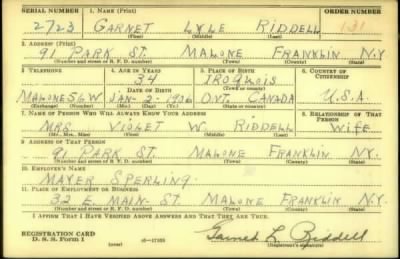 SERIAL NUMBER 1. NAME (Print) ORDER NUMBER
2723 GARNET LYLE RIDDELL 131
(First) (Middle) (Last)
2. ADDRESS (Print)
91 PARK ST. MALONE FRANKLIN N.Y
(Number and street or R. F. D. number) (Town) (County) (State)
3. TELEPHONE 4. AGE IN YEARS 5. PLACE OF BIRTH 6. COUNTRY OF CITIZENSHIP
34 IROQUOIS
DATE OF BIRTH (Town or county)
MALONE 56W JAN-2-1906 ONT. CANADA U.S.A.
(Exchange) (Number) (Mo.) (Day) (Yr.) (State or country)
7. NAME OF PERSON WHO WILL ALWAYS KNOW YOUR ADDRESS 8. RELATIONSHIP OF THAT PERSON
MRS. VIOLET W. RIDDELL WIFE
(Mr., Mrs., Miss) (First) (Middle) (Last)
9. ADDRESS OF THAT PERSON
91 PARK ST. MALONE FRANKLIN NY.
(Number and street or R. F. D. number) (Town) (County) (State)
10. EMPLOYER'S NAME
MAYER SPERLING
11. PLACE OF EMPLOYMENT OR BUSINESS
32 E. MAIN-ST. MALONE FRANKLIN N.Y.
(Number and street or R. F. D. number) (Town) (County) (State)
I AFFIRM THAT I HAVE VERIFIED ABOVE ANSWERS AND THAT THEY ARE TRUE.
REGISTRATION CARD
D. S. S. Form 1 (over) Garnet L Riddell
(Registrant's signature)